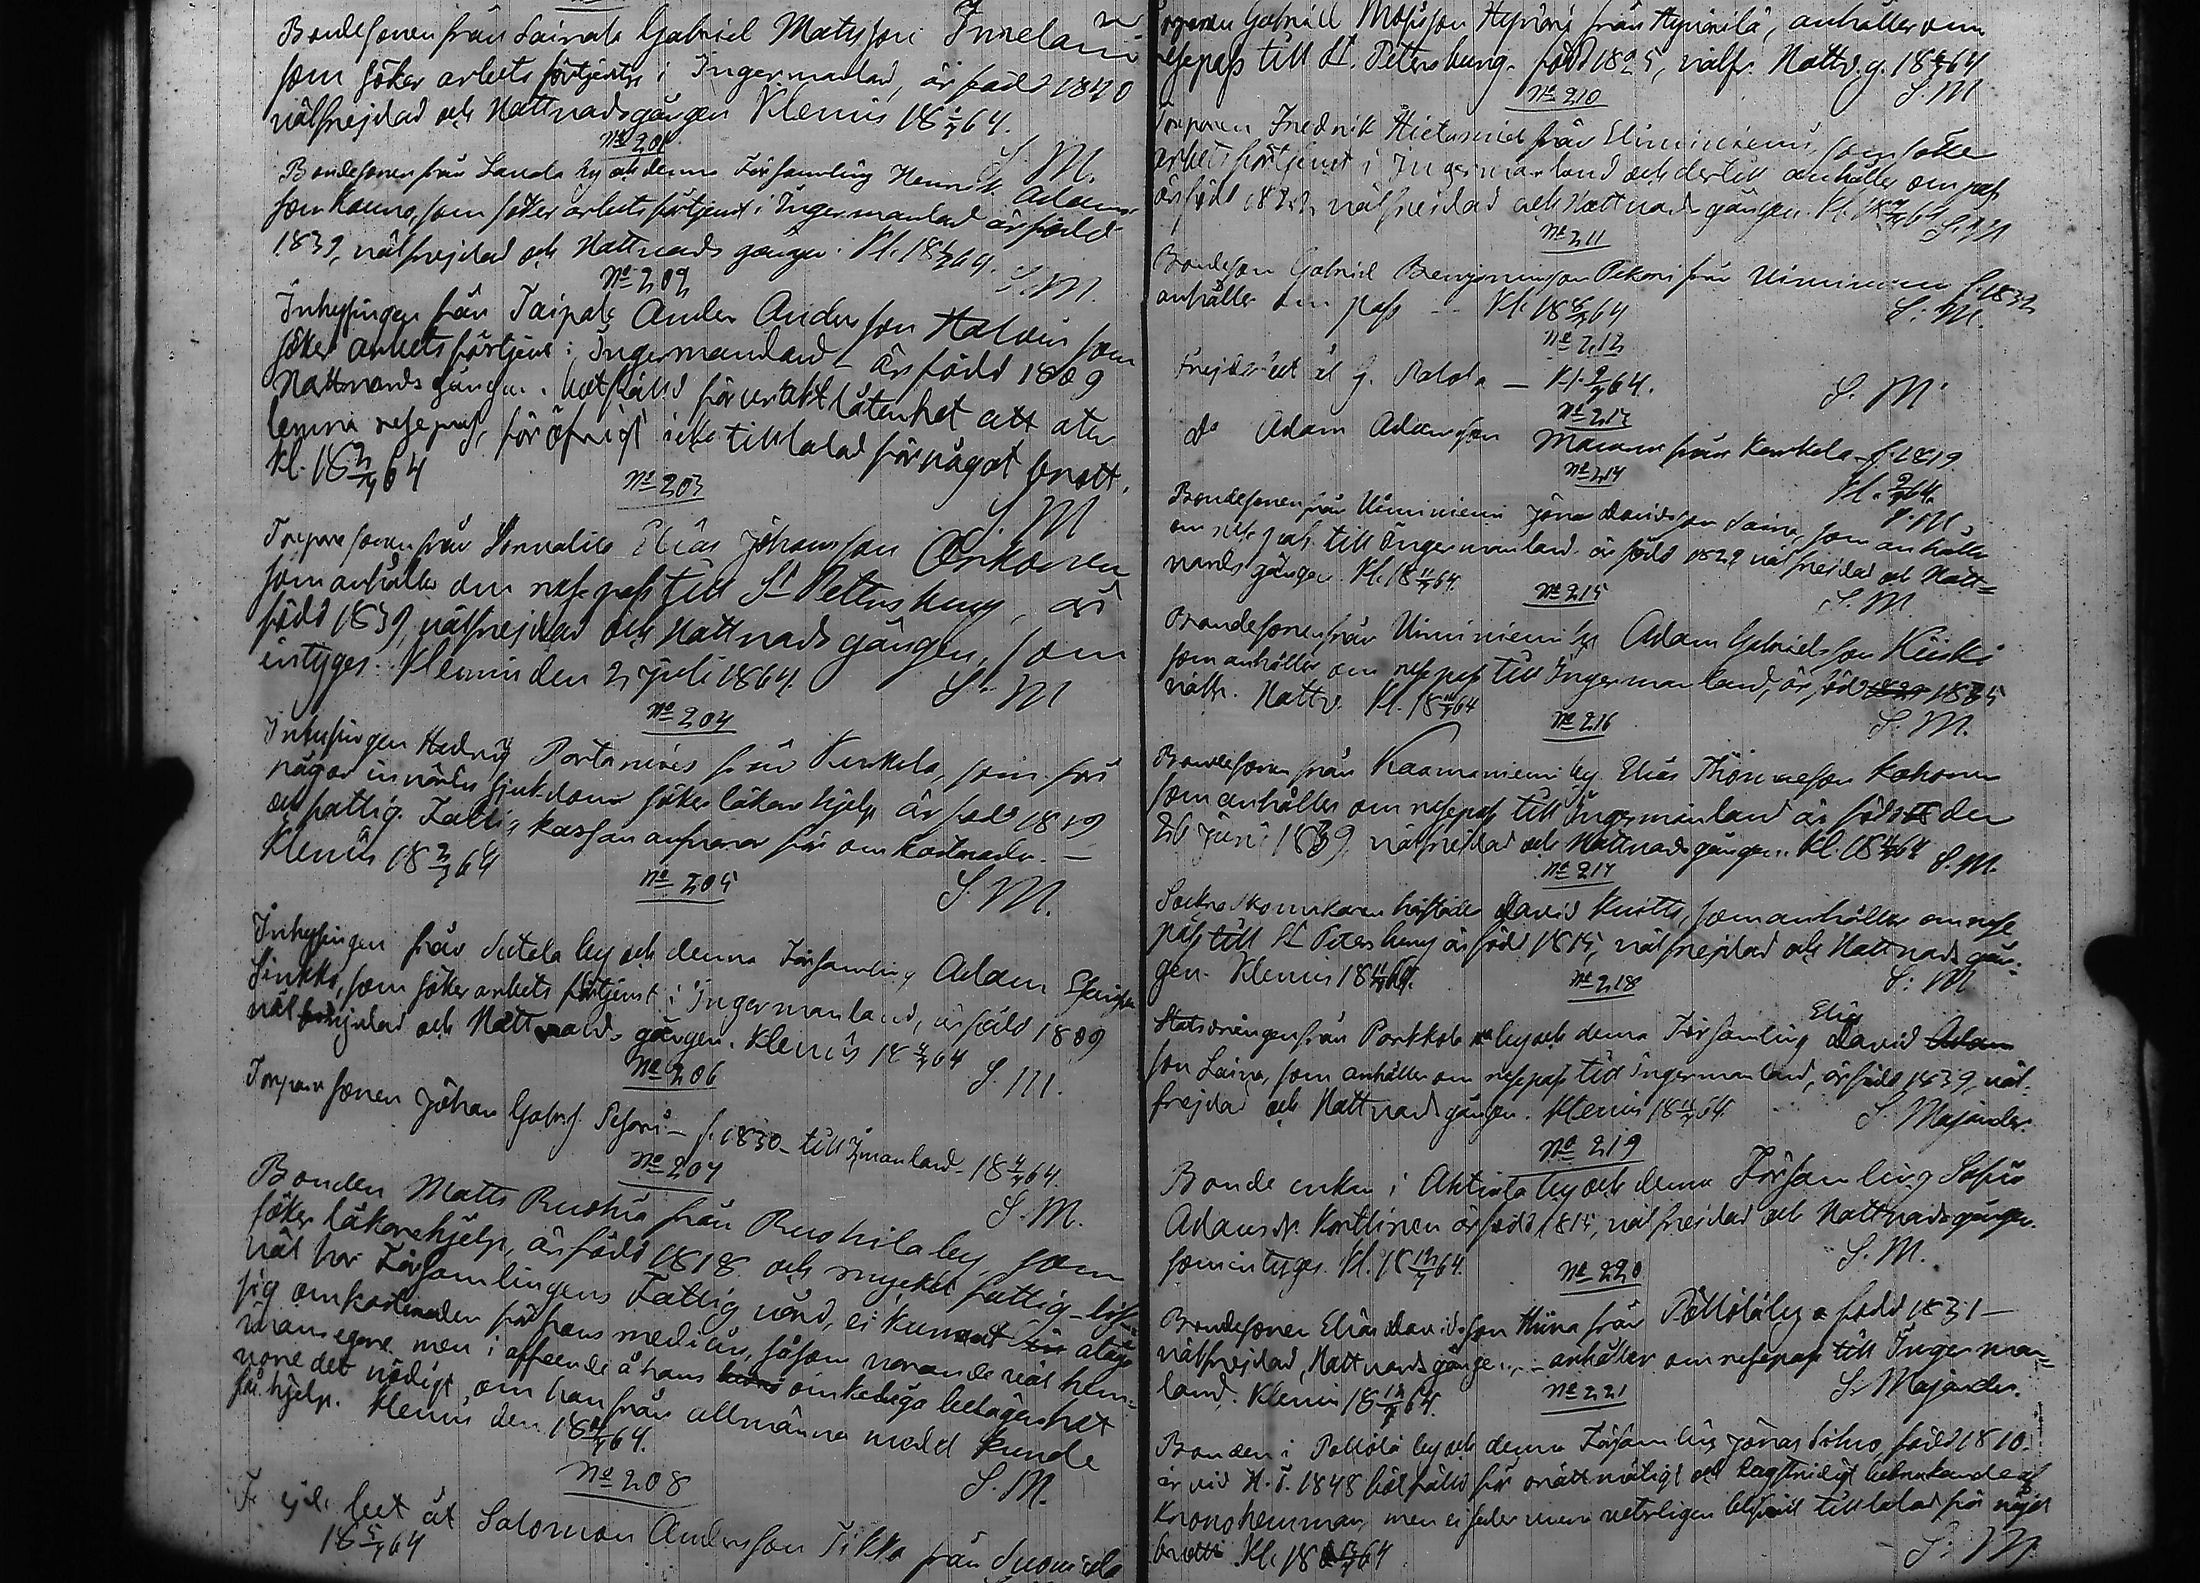 Bondesonen från Sairala Gabriel Mattsson Immelain
som söker arbetsförtjenst i Ingermanland, är född 1840
välfrejdad och Nattvardsgången Klemis 18 1/7 64.
S. M.
No 201
Bondesonen från Sauda by och denna Församling Henrik Adams
son Kauno, som söker arbetsförtjenst i Ingermanland är född
1839, välfrejdad och Nattvards gången. Kl. 18 1/7 64.
S. M.
No 202
Inhysingen från Taipale Anders Andersson Haloin som
söker arbetsförtjenst i Ingermanland är född 1809
Nattvards gången. bötfälld för uraktlåtenhet att åter
lemna respass, för öfrigt icke tilltalad för något brott.
Kl. 18 2/7 64
S. M
No 203
Torparesonen från Elias Johansson
som anhåller om respass till St Petersburg, är
född 1839, välfrejdad och Nattvards gången, som
intygas. Klemis den 2 Juli 1864.
S. M
No 204
Inhysingen Hedvig Portanines från Kurkela, som för
någon invärtes sjukdom söker läkarehjelp är född 1819
och fattig. Fattig kassan ansvarar för omkostnader. —
Klemis 18 2/7 64
S. M.
No 205
Inhysingen från Sutela by och denna Församling Adam
Sinkko, som söker arbets förtjenst i Ingermanland, är född 1809
välfrejdad och Nattvards gången. Klemis 18 4/7 64
S. M.
No 206
Torpare sonen Johan Gabrs. Pesoni — f. 1830 — till Ingmanland — 18 4/7 64.
S. M.
No 207
Bonden Matts Ruohia från Ruohila by, som
söker läkarehjelp, är född 1818 och mycket fattig
väl har Församlingens Fattigvård, ei kunnat åtaga
sig omkostnaden för hans medicin, såsom varande väl hem-
mansegare men i afseende å hans omkediga belägenhet
vore det nödigt, om han från allmänna medel kunde
få hjelp. Klemis den 18 4/7 64.
S. M.
No 208
Frejdebet åt Salomon Andersson Tikka från Suomela
18 5/7 64
Torparen Gabriel Mattsson Hyväri från Hyvärilä, anhåller om
respass till St. Petersburg. född 1825, välfr. Nattv. g. 18 6/7 64
S. M
No 210
Torparen Fredrik Hietamies från Uiminiemi, som söker
arbetsförtjenst i Ingermanland och dertill anhåller om pass
är född 1822, välfrejdad och Nattvards gången. Kl. 18 9/7 64
S. M
No 211
Bondeson Gabriel Benjaminsson Pekoni från Uiminiemi f. 1832
anhåller om pass — Kl. 18 8/7 64
S. M.
No 212
Frejdebet åt G. Ratala — Kl. 9/7 64.
S. M.
No 213
do Adam Adamsson från Kurkela f. 1819
Kl. 9/7 64.
S. M.
No 214
Bondesonen från Uiminiemi Jonas Davidsson Laina, som anhåller
om respass till Ingermanland är född 1829 välfrejdad och Natt=
vards gången. Kl. 18 11/7 64.
S. M
No 215
Bondesonen från Uiminiemi by Adam Gabrielsson Kiiski
som anhåller om respass till Ingermanland, är född 1835
välfr. Nattv. Kl. 18 11/7 64
S. M.
No 216
Bondesonen från Kaarnaniemi by Elias Thomasson Kohonen
som anhåller om respass till Ingermanland är född den
26 Juni 1839, välfrejdad och Nattvards gången. Kl. 18 11/7 64
S. M.
No 217
Sockneskomakaren David Kuitto, som anhåller om rese
pass till St Petersburg är född 1815, välfrejdad och Nattvards gån-
gen. Klemis 18 11/7 64.
S. M
No 218
Statsdrängen från Parkkola by och denna Församling David Elias
son Laina, som anhåller om respass till Ingermanland, är född 1839, väl-
frejdad och Nattvards gången. Klemis 18 11/7 64
S. Majander.
No 219
Bonde enkan i Ahtiala by och denna Församling Sofia
Adams dr Korttinen är född 1815, välfrejdad och Nattvards gången.
som intygas. Kl. 18 12/7 64.
S. M.
No 220
Bondesonen Elias Davidsson Hiira från Pöllölä by född 1831 —
välfrejdad, Nattvardsgången — anhåller om respass till Ingerman=
land. Klemis 18 12/7 64.
S. Majander.
No 221
Bonden i Pöllölä by och denna Församling Jonas Sihvo, född 1810
är vid H. T. 1848 bötfälld för orättmätigt och lagstridigt betraktande af
Kronohemman, men ei sedermera veterligen blifvit tilltalad för något
brott Kl. 18 13/7 64
S. M